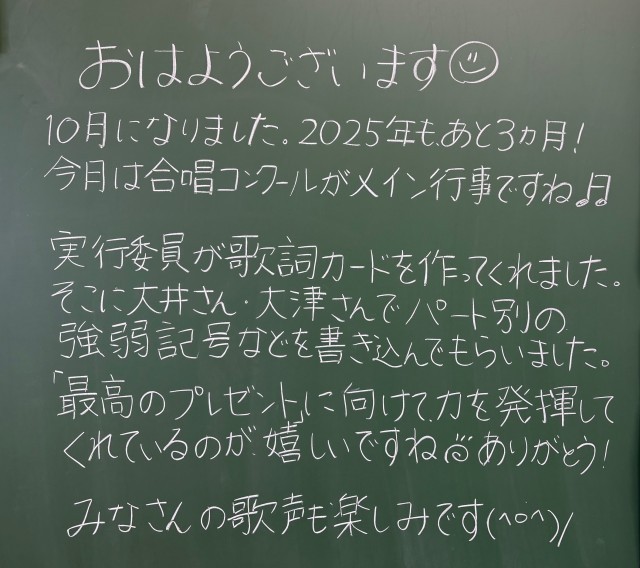 おはようございます☺
10月になりました。2025年も、あと3ヵ月!
今月は合唱コンクールがメイン行事ですね♫
実行委員が歌詞カードを作ってくれました。
そこに大井さん・大津さんでパート別の
強弱記号などを書き込んでもらいました。
「最高のプレゼント」に向けて、力を発揮して
くれているのが嬉しいですね ありがとう!
みなさんの歌声も楽しみです(^o^)/